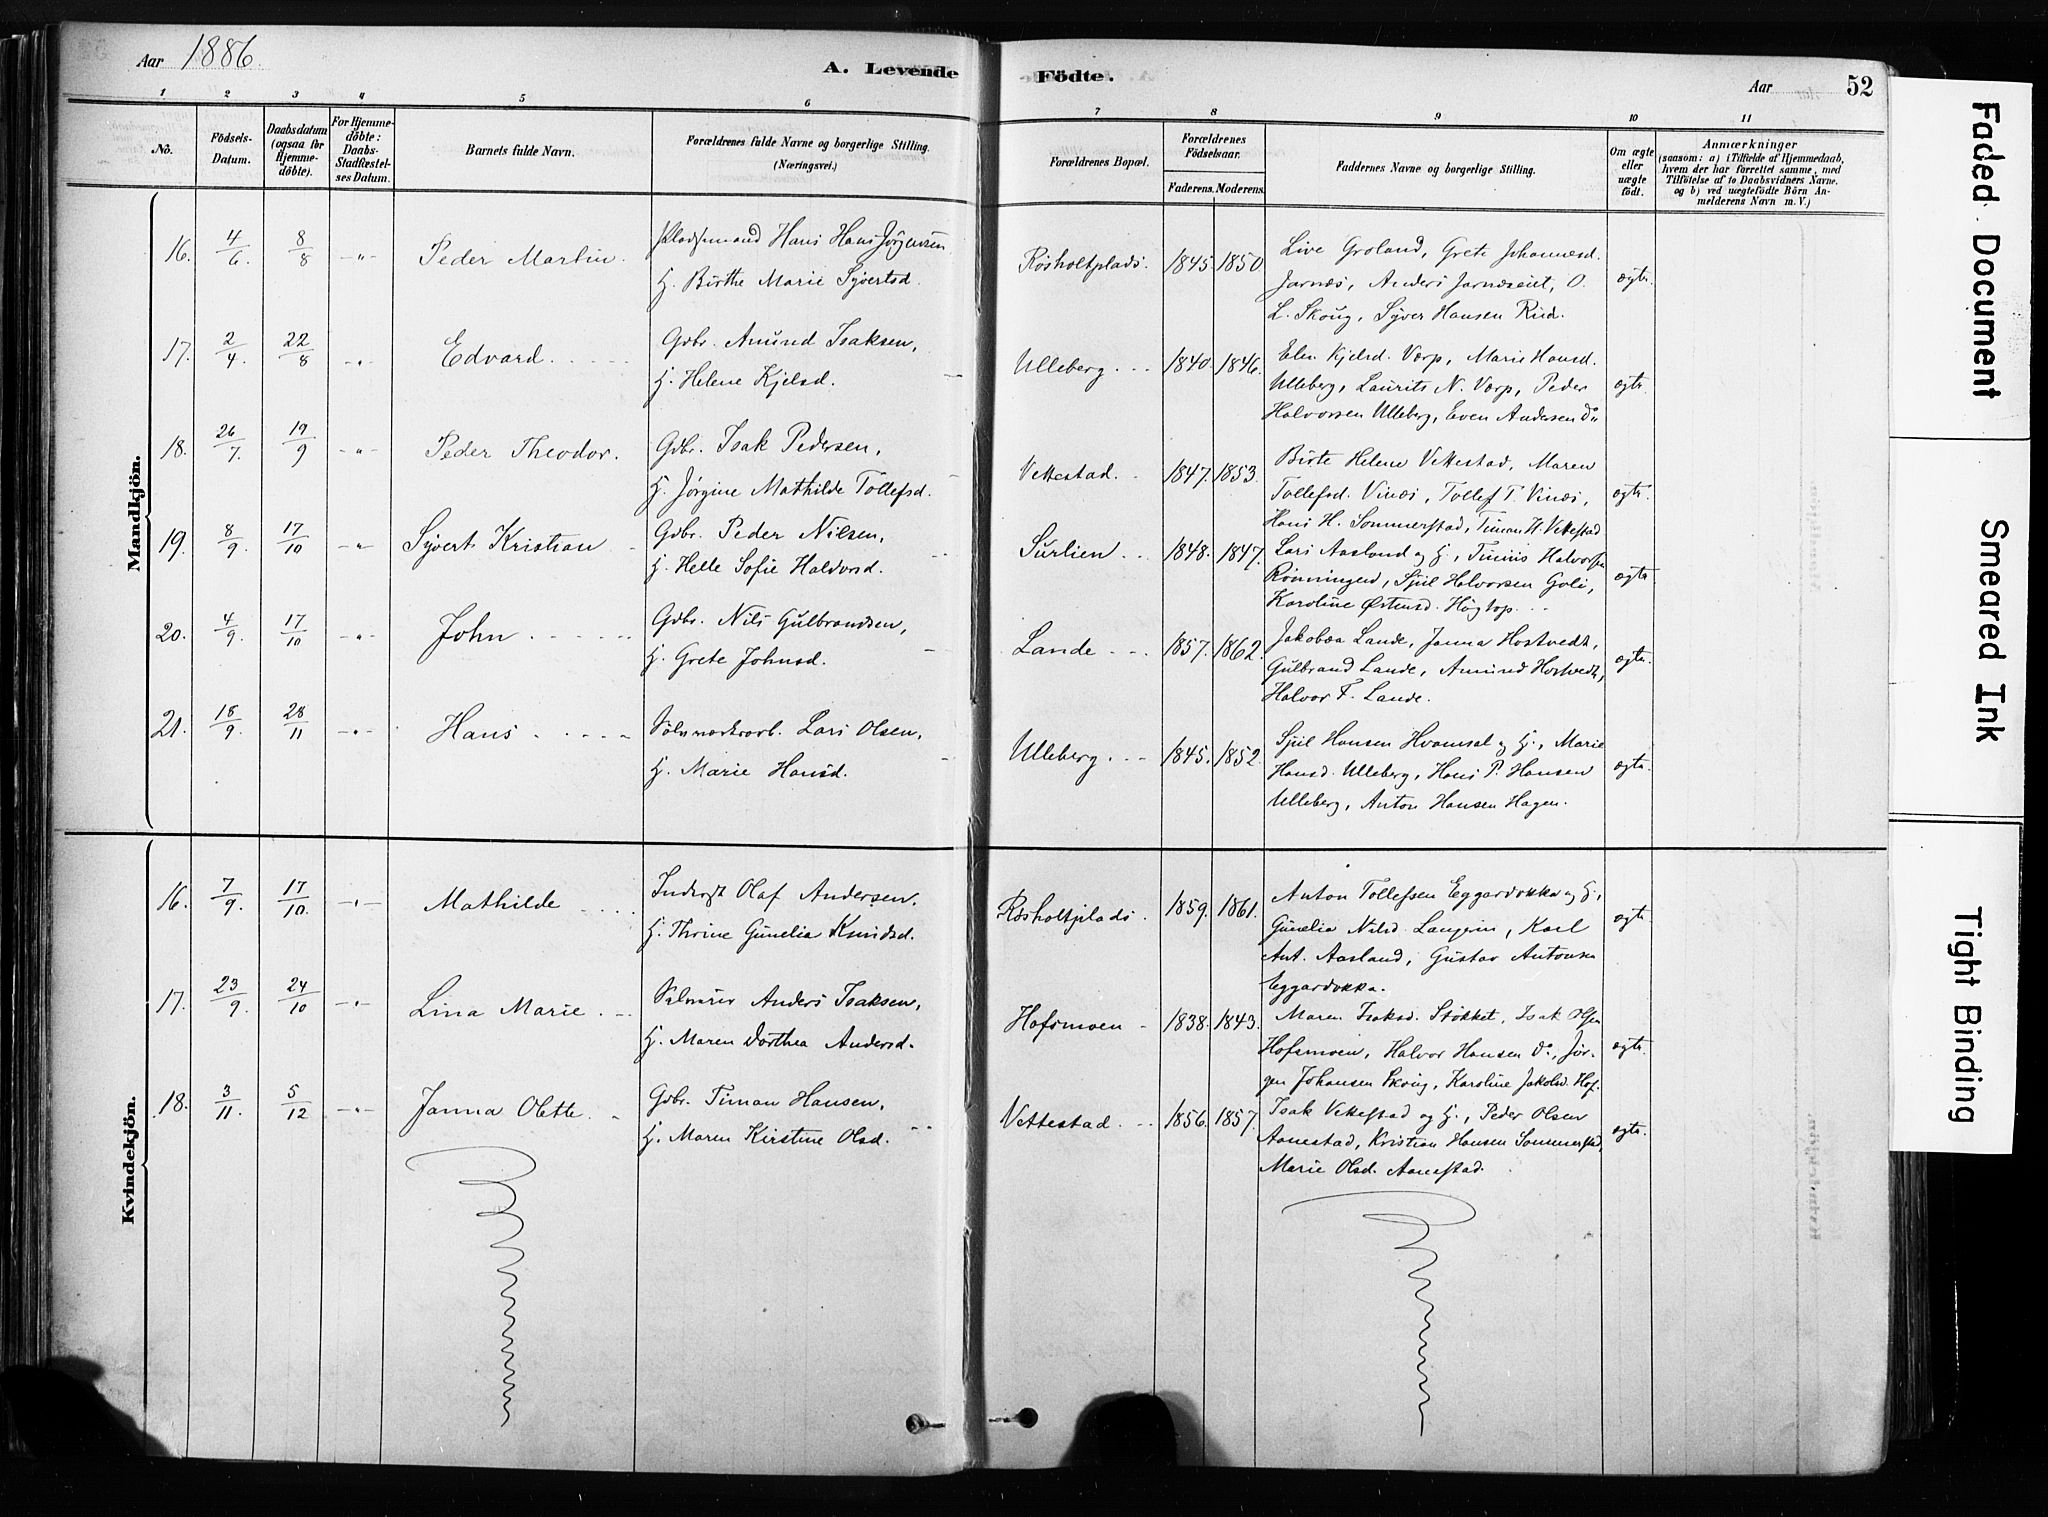 Aar 1886.
A. Levende Födte.
Aar 52
1 2 3 4 5 6 7 8 9 10 11
No.
Födsels-Datum.
Daabsdatum (ogsaa for Hjemme-döbte).
For Hjemme-döbte: Daabs-Stadfæstel-ses Datum.
Barnets fulde Navn.
Forældrenes fulde Navne og borgerlige Stilling.
(Næringsvei.)
Forældrenes Bopæl.
Forældrenes Födselsaar.
Faderens. Moderens.
Faddernes Navne og borgerlige Stilling.
Om ægte eller uægte födt.
Anmærkninger
(saasom: a) i Tilfælde af Hjemmedaab,
hvem der har forrettet samme, med
Tilföielse af to Daabsvidners Navne.
og b) ved uægtefödte Börn An-
melderens Navn m. V.)
Mandkjön.
16. 4/6. 8/8 -"- Peder Martin. Pladsmand Hans Hans Jørgensen
H. Birthe Marie Syvertsd.
Røsholtplads. 1845. 1850
Live Groland, Grete Johannesd.
Jarnæs, Anders Jarnæseiet, O.
L. Skoug, Syver Hansen Rud.
ægte.
17. 2/4. 22/8 -"- Edvard. Gdbr. Amund Isaksen,
H. Helene Kjelsd.
Ulleberg. 1840. 1846.
Elen Kjelsd. Værp, Marie Hansd.
Ulleberg, Laurits N. Værp, Peder
Halvorsen Ulleberg, Even Andersen Do
ægte
18. 26/7. 19/9 -"- Peder Theodor. Gdbr. Isak Pedersen,
H. Jørgine Mathilde Tollefsd.
Vettestad. 1847. 1853.
Birte Helene Vettestad, Maren
Tollefsd. Vinæs, Tollef T. Vinæs,
Hans H. Sommerstad, Timan H. Vettestad
ægte.
19. 8/9. 17/10 -"- Syvert Kristian Gdbr. Peder Nilsen,
H. Helle Sofie Halvorsd.
Surlien. 1848. 1847.
Lars Aasland og H.,
Rønningen, Sjul Halvorsen Goli,
Karoline Østensd. Høgtop.
ægte
20. 4/9. 17/10 -"- John Gdbr. Nils Gulbrandsen,
H. Grete Johnsd.
Lande 1857. 1862.
Jakobæa Lande, Janna Hostvedt,
Gulbrand Lande, Amund Hostvedt,
Halvor F. Lande.
ægte.
21. 18/9. 28/11 -"- Hans Sølvværksarb. Lars Olsen,
H. Marie Hansd.
Ulleberg. 1845. 1852.
Sjul Hansen Hvamsal og H., Marie
Hansd. Ulleberg, Hans P. Hansen
Ulleberg, Anton Hansen Hagen.
ægte.
Kvindekjön.
16. 7/9. 17/10. -"- Mathilde Inderst Olaf Andersen.
H. Thrine Gunelia Knudsd.
Røsholtplads. 1859. 1861.
Anton Tollefsen Eggardokka og H.,
Gunelia Nilsd. Langerin, Karl
Ant. Aasland, Gustav Antonsen
Eggardokka.
ægte.
17. 23/9. 24/10 -"- Lina Marie. Selveier Anders Isaksen,
H. Maren Dorthea Andersd.
Hofsmoen 1838. 1843.
Maren Isaksd. Støkket, Isak Olsen
Hofsmoen, Halvor Hansen Do., Jør-
gen Johansen Skoug, Karoline Jakobsd. Hof.
ægte.
18. 3/11. 5/12 -"- Janna Olette. Gdbr. Timan Hansen,
H. Maren Kirstine Olsd.
Vettestad. 1856. 1857.
Isak Vettestad og H., Peder Olsen
Aanestad, Kristian Hansen Sommerstad,
Marie Olsd. Aanestad.
ægte.
Faded Document
Smeared Ink
Tight Binding